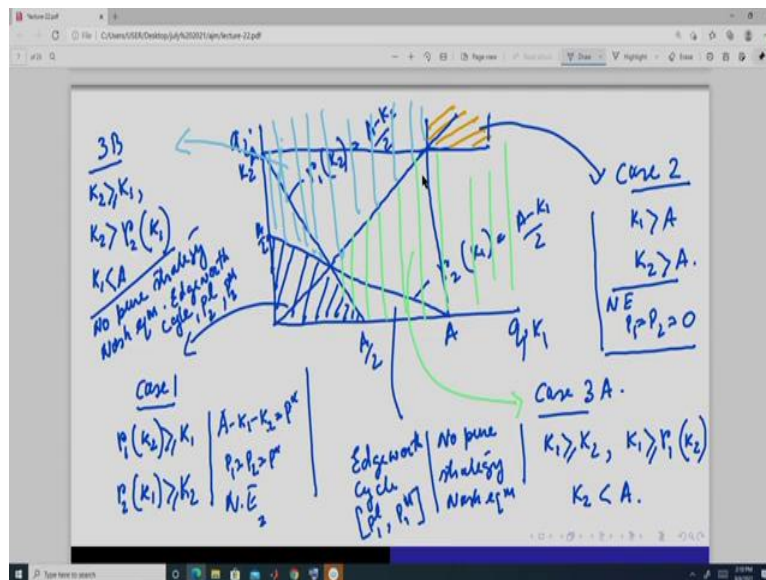 lecture-22.pdf
C:/Users/USER/Desktop/july%202021/ajm/lecture-22.pdf
Page view
Draw
Highlight
Erase
3B
K₂ ≥ K₁,
K₂ > r₂(K₁)
K₁ < A
No pure strategy
Nash eqm. Edgeworth
cycle,
K₂
A/2
r₁(K₂) =
r₂(K₁) = A-K₁/2
A/2
A
q₁, K₁
Case 2
K₁ > A
K₂ > A.
NE
P₁=P₂=0
Case 1
r₁(K₂) ≥ K₁
r₂(K₁) ≥ K₂
A-K₁-K₂ = p*
P₁=P₂=p*
N.E
Edgeworth
Cycle
No pure
strategy
Nash eqm
Case 3A.
K₁ ≥ K₂, K₁ ≥ r₁(K₂)
K₂ < A.
Type here to search